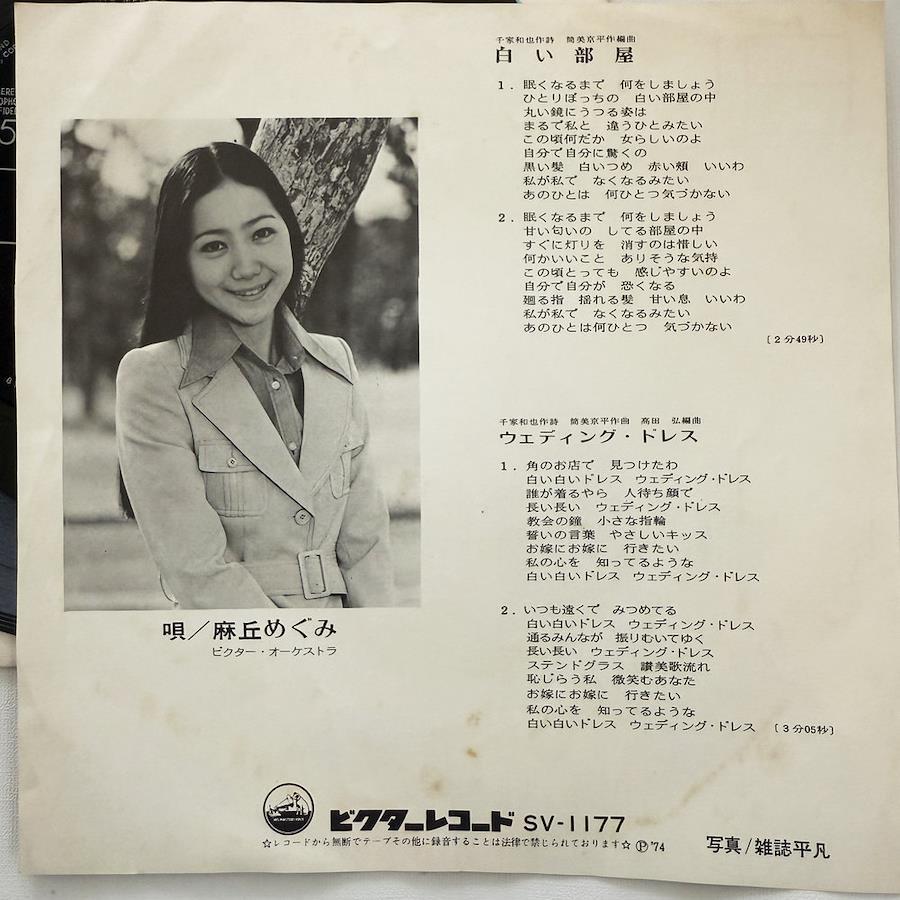 千家和也作詩 筒美京平作編曲
白い部屋
1. 眠くなるまで 何をしましょう
ひとりぼっちの 白い部屋の中
丸い鏡にうつる姿は
まるで私と 違うひとみたい
この頃何だか 女らしいのよ
自分で自分に驚くの
黒い髪 白いつめ 赤い頬 いいわ
私が私で なくなるみたい
あのひとは 何ひとつ気づかない
2. 眠くなるまで 何をしましょう
甘い匂いの してる部屋の中
すぐに灯りを 消すのは惜しい
何かいいこと ありそうな気持
この頃とっても 感じやすいのよ
自分で自分が 恐くなる
廻る指 揺れる髪 甘い息 いいわ
私が私で なくなるみたい
あのひとは何ひとつ 気づかない
〔2分49秒〕
千家和也作詩 筒美京平作曲 高田 弘編曲
ウェディング・ドレス
1. 角のお店で 見つけたわ
白い白いドレス ウェディング・ドレス
誰が着るやら 人待ち顔で
長い長い ウェディング・ドレス
教会の鐘 小さな指輪
誓いの言葉 やさしいキッス
お嫁にお嫁に 行きたい
私の心を 知ってるような
白い白いドレス ウェディング・ドレス
2. いつも遠くで みつめてる
白い白いドレス ウェディング・ドレス
通るみんなが 振りむいてゆく
長い長い ウェディング・ドレス
ステンドグラス 讃美歌流れ
恥じらう私 微笑むあなた
お嫁にお嫁に 行きたい
私の心を 知ってるような
白い白いドレス ウェディング・ドレス 〔3分05秒〕
唄/麻丘めぐみ
ビクター・オーケストラ
ビクターレコード SV-1177
☆レコードから無断でテープその他に録音することは法律で禁じられております☆ Ⓟ'74
写真/雑誌平凡